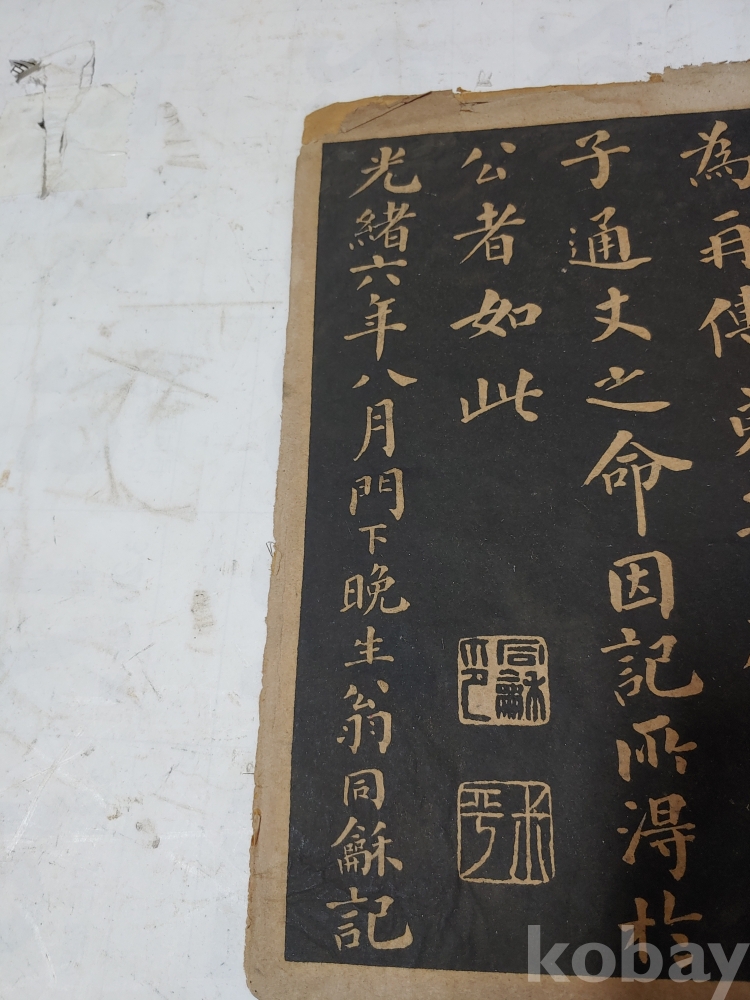 為再傳弟子
子通丈之命因記所得於
公者如此
光緒六年八月門下晚生翁同龢記
同龢
kobay